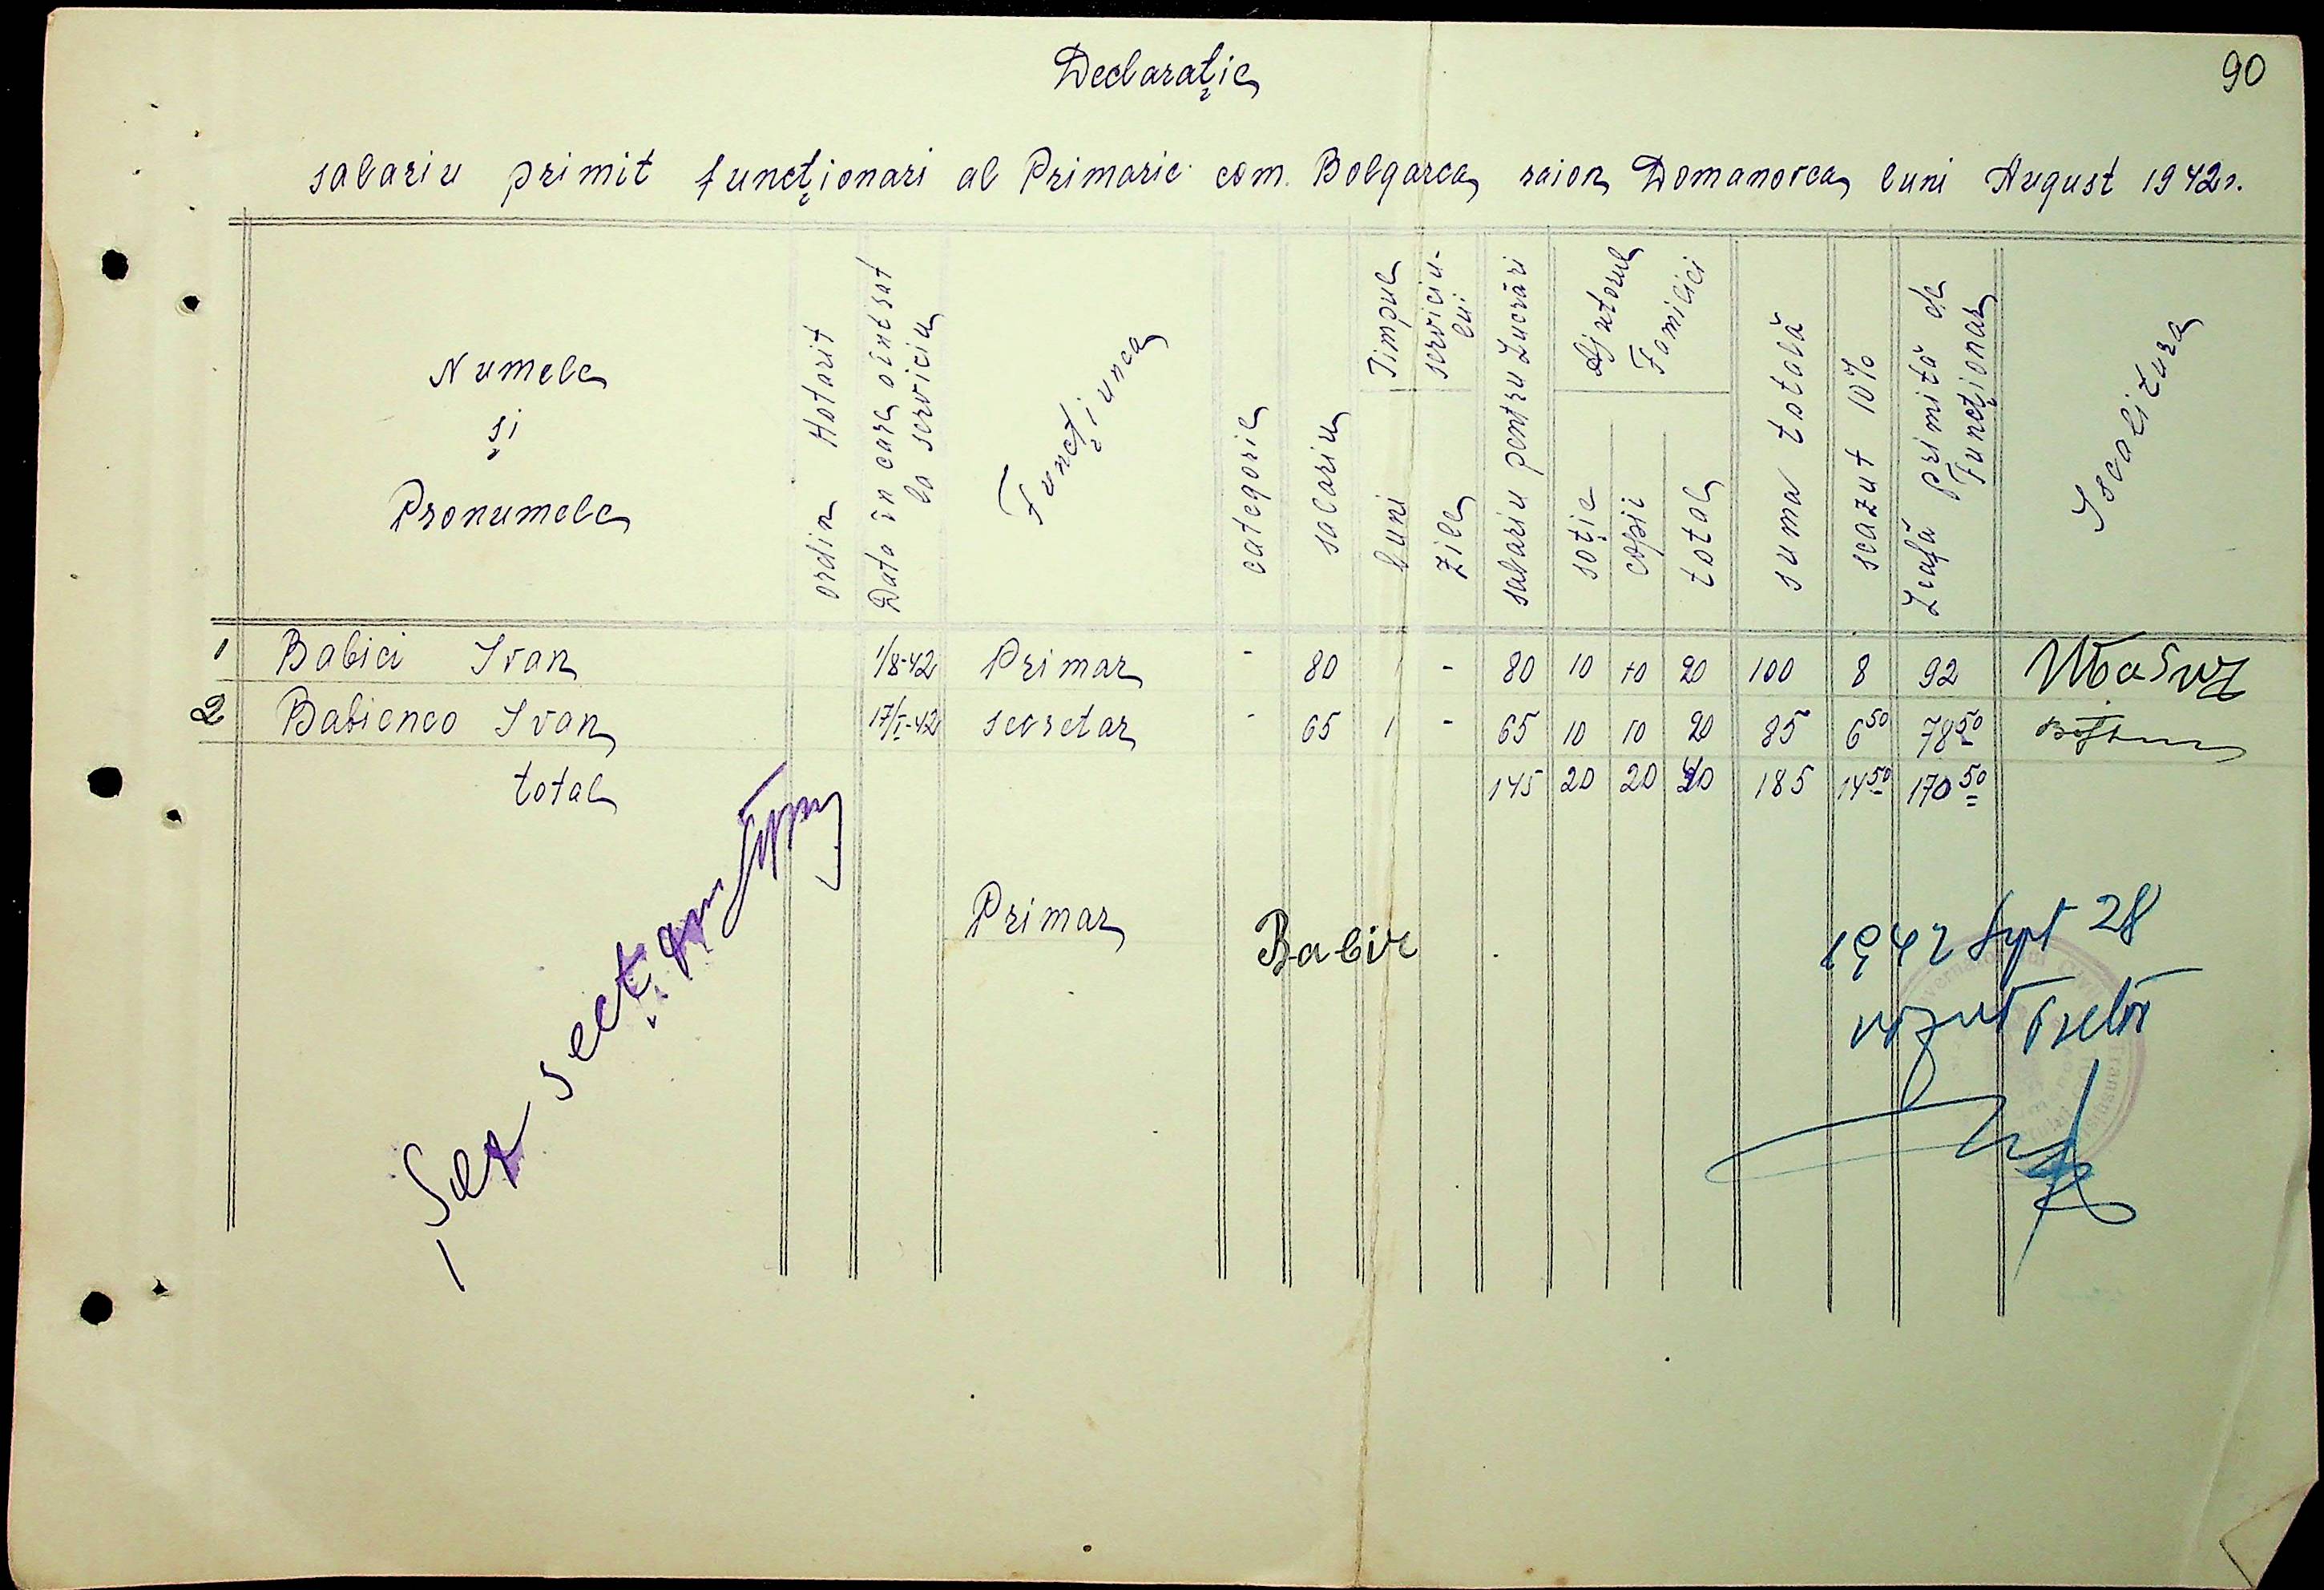 90
Declarație
salariu primit funcționari al Primarie com. Bolgarca raion Domanovca luni August 1942 r.
Numele și Pronumele | ordin Hotarit | Data în care a intrat la serviciu | Funcțiunea | categorie | salariu | Timpul serviciului | luni | zile | salariu pentru Lucrări | Ajutorul Familiei | soție | copii | total | suma totală | scazut 10% | Leafă primită de Funcționar | Iscalitura
1 Babici Ivan 1/8-42 Primar - 80 1 - 80 10 10 20 100 8 92
2 Babienco Ivan 17/I-42 secretar - 65 1 - 65 10 10 20 85 6 50 78 50
total 145 20 20 40 185 14 50 170 50
Primar Babic
1942 Sept 28
vizut Pretor